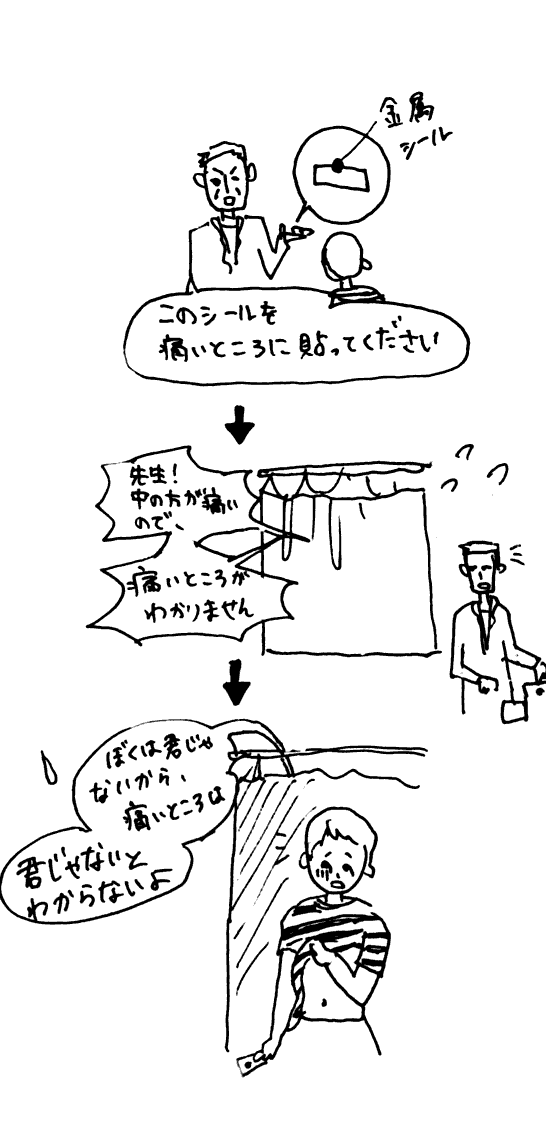 金属
シール
このシールを
痛いところに貼ってください
先生！
中の方が痛い
ので、
痛いところが
わかりません
ぼくは君じゃ
ないから、
痛いところは
君じゃないと
わからないよ